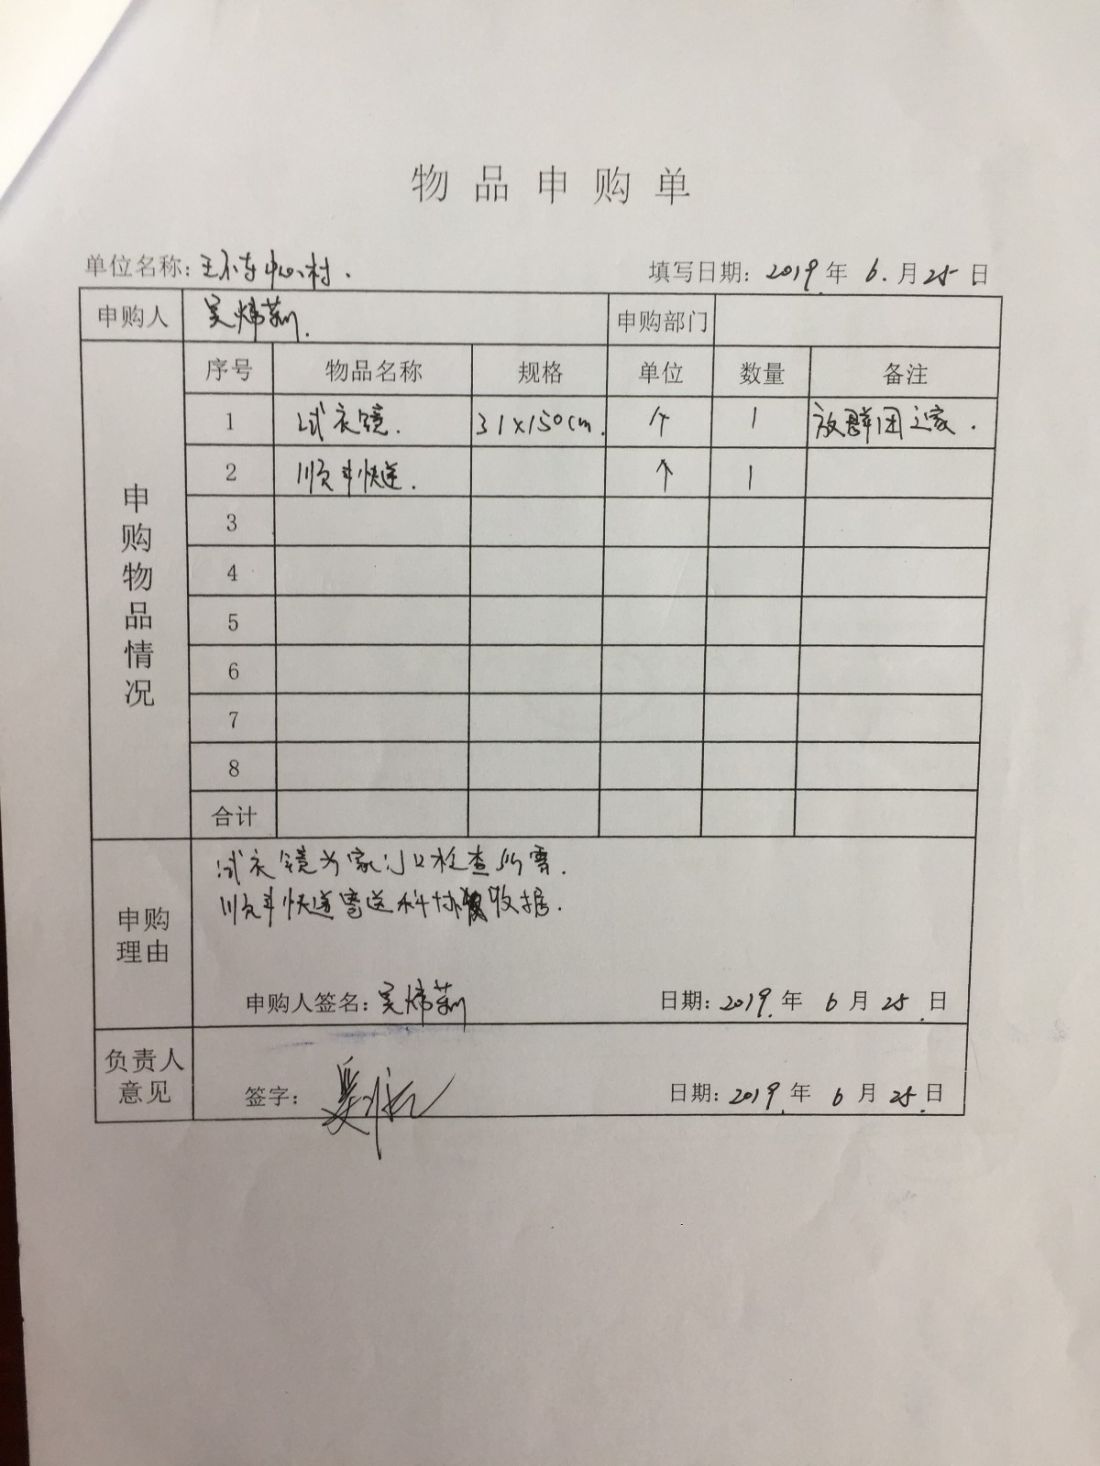 物品申购单
单位名称: 王不东中心村. 填写日期: 2019年 6.月25日
申购人 吴炜莉. 申购部门
申购物品情况
序号 物品名称 规格 单位 数量 备注
1 试衣镜. 31×150cm. 个 1 放群团之家.
2 顺丰快递. 个 1
3
4
5
6
7
8
合计
申购理由
试衣镜为家门口检查所需.
顺丰快递寄送科协收据.
申购人签名: 吴炜莉 日期: 2019.年 6月25.日
负责人意见
签字: 日期: 2019.年 6月25.日